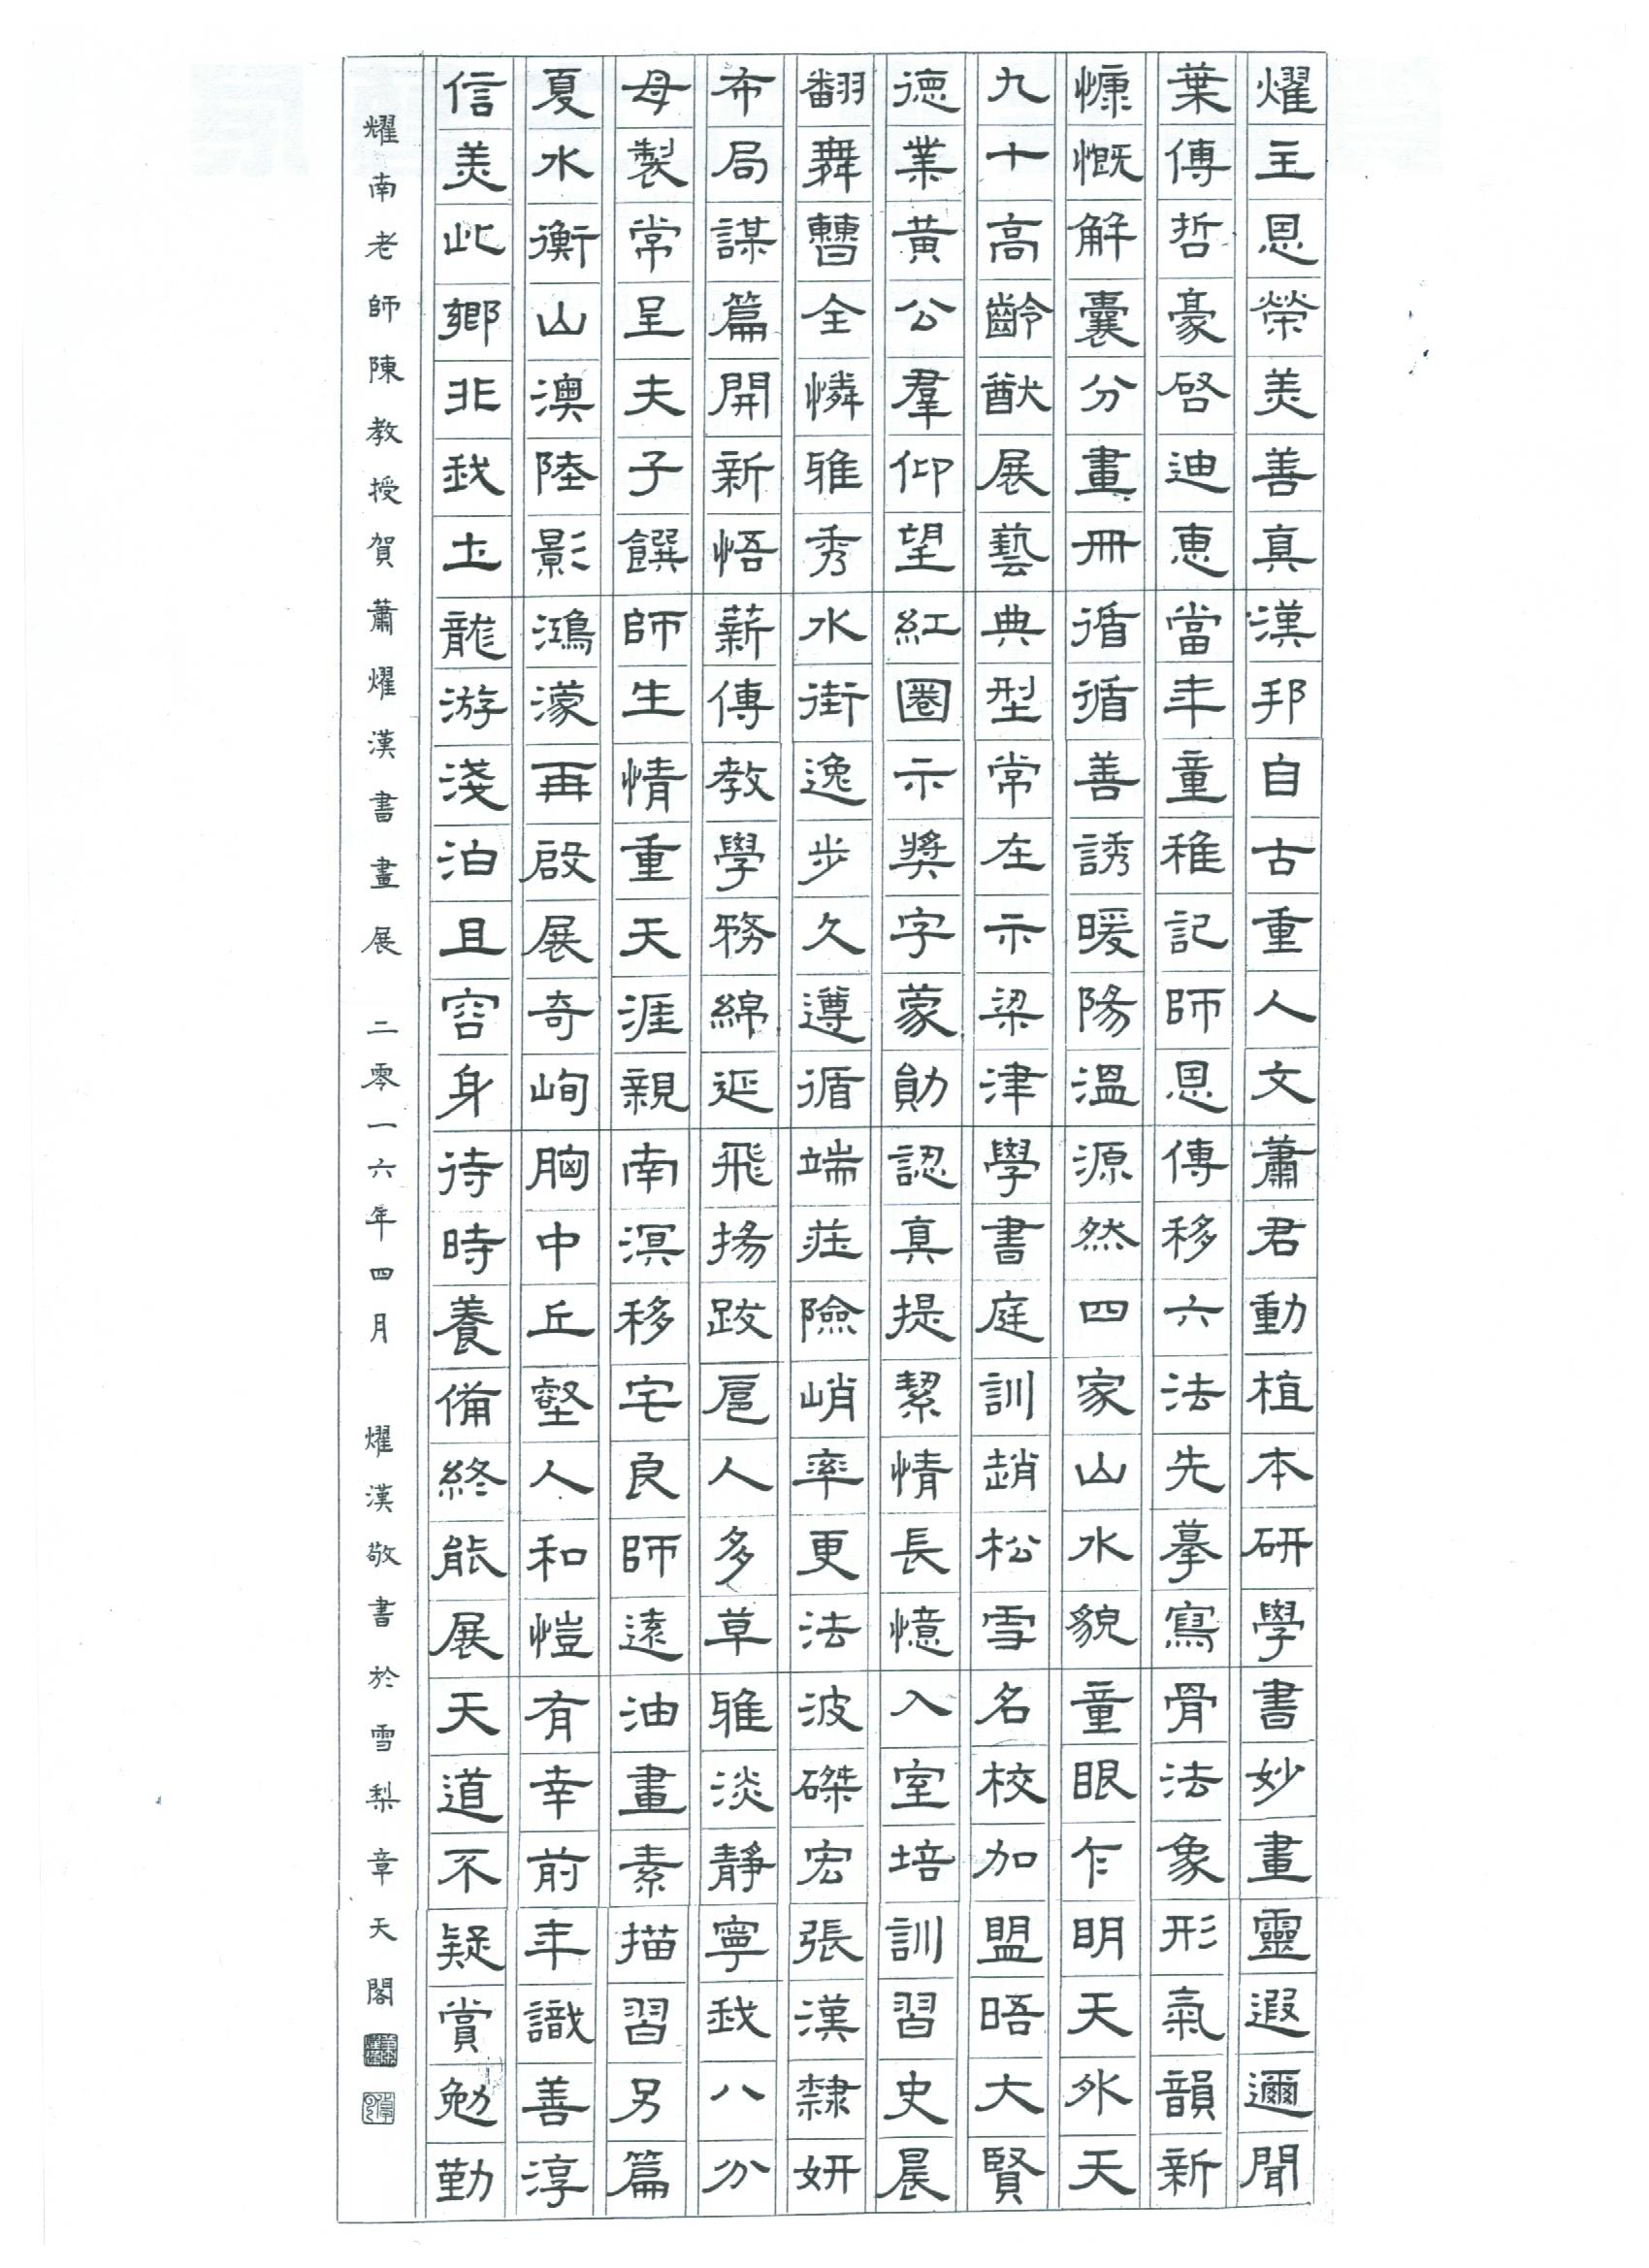 燿主恩榮美善真漢邦自古重人文蕭君動植本研學書妙畫靈遐邇聞
葉傳哲豪啓迪惠當年童稚記師恩傳移六法先摹寫骨法象形氣韻新
慷慨解囊分畫冊循循善誘暖陽溫源然四家山水貌童眼乍明天外天
九十高齡猷展藝典型常在示梁津學書庭訓趙松雪名校加盟晤大賢
德業黃公羣仰望紅圈示獎字蒙勛認真提絜情長憶入室培訓習史晨
翻舞轡全憐雅秀水街逸步久遵循端莊險峭率更法波磔宏張漢隸妍
布局謀篇開新悟薪傳教學務綿延飛揚跋扈人多草雅淡靜寧我八分
母製常呈夫子饌師生情重天涯親南溟移宅良師遠油畫素描習另篇
夏水衡山澳陸影鴻濛再啟展奇峋胸中丘壑人和愷有幸前年識善淳
信美此鄉非我土龍游淺泊且容身待時養備終能展天道不疑賞勉勤
耀南老師陳教授賀蕭燿漢書畫展 二零一六年四月 燿漢敬書於雪梨章天閣